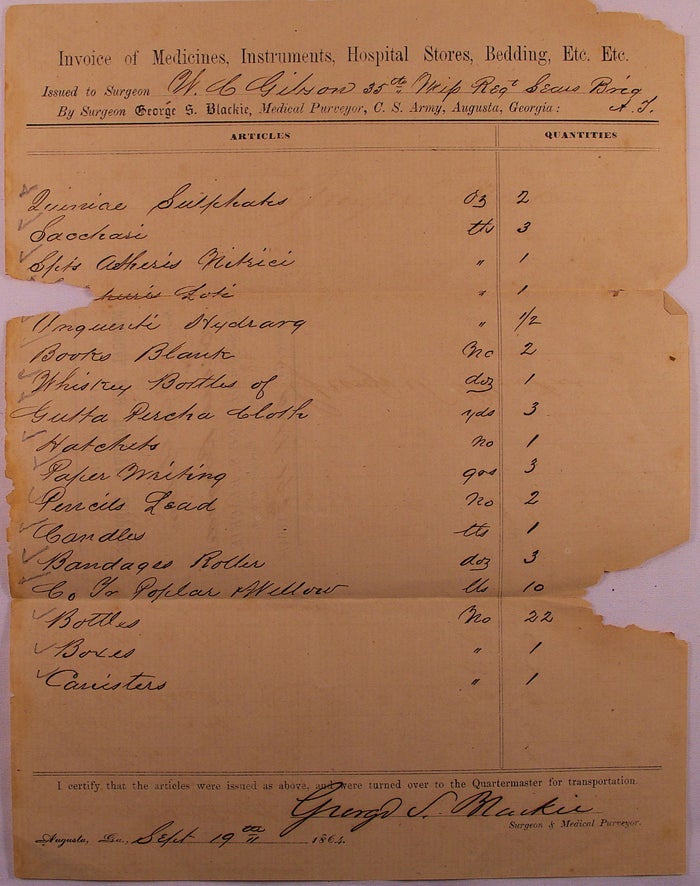 Invoice of Medicines, Instruments, Hospital Stores, Bedding, Etc. Etc.
Issued to Surgeon W. C Gibson 35th Miss Regt Sears Brig
By Surgeon George S. Blackie, Medical Purveyor, C. S. Army, Augusta, Georgia: A. T.
ARTICLES QUANTITIES
Quiniae Sulphatis Oz 2
Sacchari lb 3
Spts Atheris Nitrici " 1
Loti " 1
Unguenti Hydrarg " 1/2
Books Blank No 2
Whiskey Bottles of doz 1
Gutta Percha Cloth yds 3
Hatchets No 1
Paper Writing qrs 3
Pencils Lead No 2
Candles lbs 1
Bandages Roller doz 3
Co Tr Poplar & Willow lbs 10
Bottles No 22
Boxes " 1
Canisters " 1
I certify that the articles were issued as above, and were turned over to the Quartermaster for transportation.
George S. Blackie
Surgeon & Medical Purveyor.
Augusta, Ga., Sept 19th 1864.